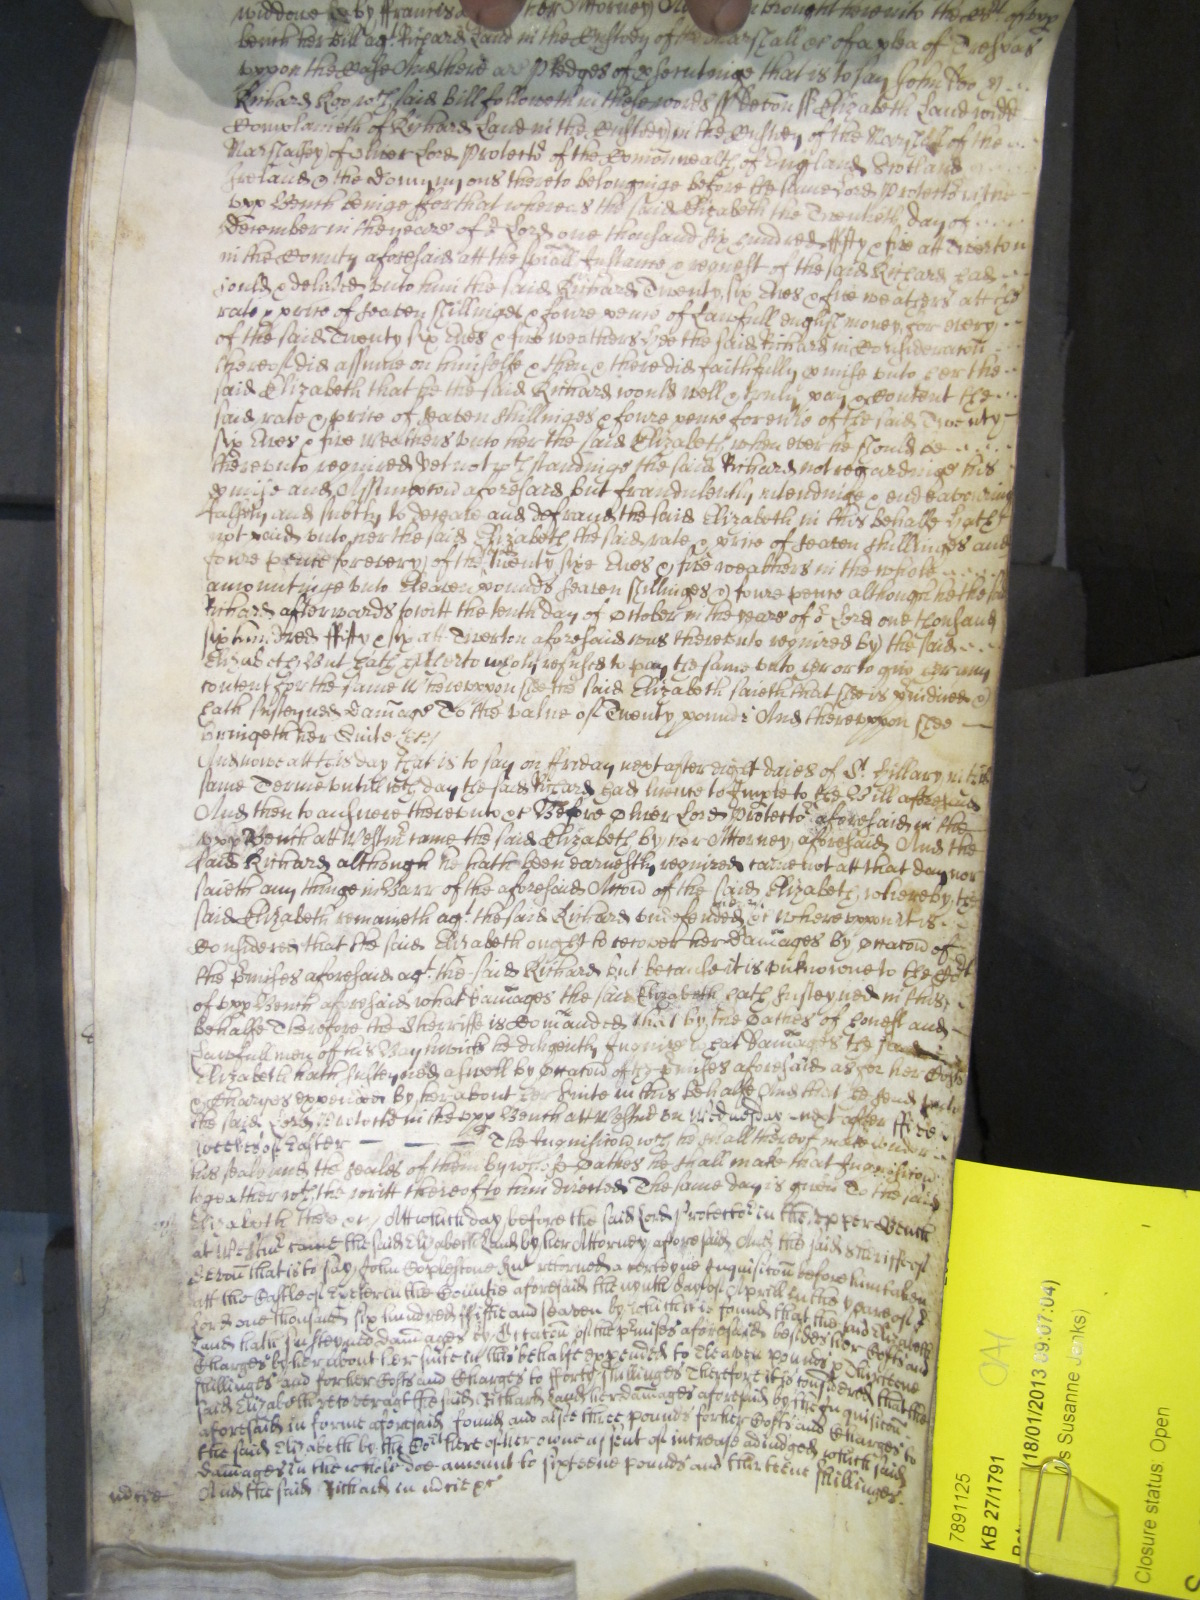 widdowe by Francis her Attorney And brought here into the Co:rt of vpp
bench her bill ag:t Richard Land in the Custody of the Marshall &c of a plea of Trespas
vppon the Case And there are pledges of prosecutinge that is to say John Doo &
Richard Roo w:ch said bill followeth in these words ss Devon ss Elizabeth Land widd
Complaineth of Richard Land in the Custody in the Custody of the Marshall of the
Marshalsey of Oliver Lord Protecto:r of the Comonwealth of England Scotland
Ireland & the Domynyons thereto belonginge before the same Lord Protecto:r in the
vpp Bench beinge For that whereas the said Elizabeth the Twentieth day of
December in the yeare of o:r Lord one thousand six hundred fifty & five att Twerton
in the County aforesaid att the speciall Instance & request of the said Richard had
sould & delivred vnto him the said Richard Twenty six Ewes & five weathers att the
rate & price of seaven shillinges & foure pence of Lawfull english money for every
of the said Twenty six Ewes & five weathers Hee the said Richard in Consideracon
thereof did assume on himselfe & then & there did faithfully pmise vnto her the
said Elizabeth that he the said Richard would well & truly pay & Content the
said rate & price of seaven shillinges & foure pence for every of the said Twenty
six Ewes & five weathers vnto her the said Elizabeth when ever he should be
therevnto required Yet notw:th standinge the said Richard not regardinge his
pmise and Assumpcon aforesaid but fraudulently intendinge & endeavouring
falsely and subtly to deceave and defraud the said Elizabeth in this behalfe hath
not paid vnto her the said Elizabeth the said rate & price of seaven shillinges and
foure pence for every of the said Twenty sixe Ewes & five weathers in the whole
amountinge vnto Eleaven pounds seaven shillinges & foure pence although he the said
Richard afterwards towitt the tenth day of October in the yeare of o:r Lord one thousand
six hundred fifty & six att Twerton aforesaid was therevnto required by the said
Elizabeth But hath hitherto wholy refused to pay the same vnto her or to give her any
content for the same Wherevppon shee the said Elizabeth saieth that shee is Iniured &
hath susteyned Damage To the value of Twenty pounds And therevppon shee
bringeth her Suite &c
And nowe att this day that is to say on Friday next after eight daies of S:t Hillary in this
same Terme vntill w:ch day the said Richard had licence to Imple to the Bill aforesaid
And then to answere therevnto &c Before Oliver Lord Protecto:r aforesaid in the
vpp Bench att Westm:r came the said Elizabeth by her Attorney aforesaid And the
said Richard although he hath been earnestly required came not att that day nor
saieth any thinge in Barr of the aforesaid Accon of the said Elizabeth whereby the
said Elizabeth remaineth ag:t the said Richard vndefended &c Wherevppon it is
Considered that the said Elizabeth ought to recover her Damages by occacon of
the pmises aforesaid ag:t the said Richard but because it is vnknowne to the Co:rt
of vpp Bench aforesaid what Damages the said Elizabeth hath susteyned in this
behalfe Therefore the Sherriffe is Comanded that by the Oathes of honest and
Lawfull men of his Baylywick he diligently Inquire what Damages the said
Elizabeth hath susteyned aswell by occacon of the pmises aforesaid as for her Costs
& Charges expended by her about her suite in this behalfe And that he send
the said Lord Protecto:r in the vpp Bench att Westm:r on Wednesday next after Five
weekes of Easter — — — The Inquisicon w:ch he shall thereof make vnder
his seale and the seales of them by whose Oathes he shall make that Inquisicon
togeather w:th the writt thereof to him directed The same day is given To the said
Elizabeth there &c Att which day before the said Lord Protecto:r in the vpper Bench
at Westm:r came the said Elizabeth Land by her Attorney aforesaid And the said Sherriffe of
Devon that is to say John Coplestone Kn:t retorned a certeyne Inquisicon before him taken
att the Castle of Exeter in the Countie aforesaid the nynth day of Aprill in the yeare of o:r
Lord one thousand six hundred fiftie and seaven by which it is found that the said Elizabeth
Land hath susteyned damages by Occacon of the pmises aforesaid besides her Costs and
Charges by her about her suite in this behalfe expended to Eleaven pounds & Thirteene
shillinges and for her Costs and Charges to fforty shillinges Therefore it is considered that the
said Elizabeth recover ag:t the said Richard Land her damages aforesaid by the Inquisicon
aforesaid in forme aforesaid found and alsoe three pounds for her Costs and Charges to
the said Elizabeth by the Co:rt here of her owne assent of increase adiudged which said
damages in the whole doe amount to sixteene pounds and thirteene shillinges.
mercie And the said Richard in mercie &c
7891125
KB 27/1791
(18/01/2013 09:07:04)
s Susanne Jenks)
Closure status: Open